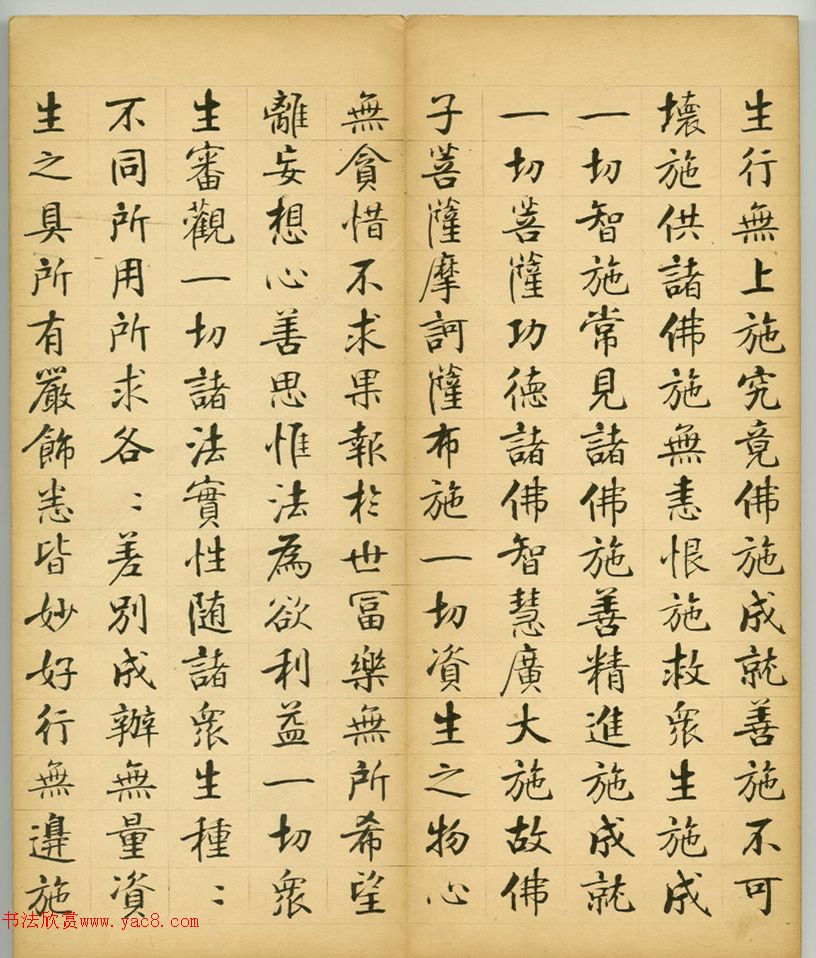 生行無上施究竟佛施成就善施不可
壞施供諸佛施無恚恨施救衆生施成
一切智施常見諸佛施善精進施成就
一切菩薩功德諸佛智慧廣大施故佛
子菩薩摩訶薩布施一切資生之物心
無貪惜不求果報於世冨樂無所希望
離妄想心善思惟法為欲利益一切衆
生審觀一切諸法實性随諸衆生種〻
不同所用所求各〻差别成辦無量資
生之具所有嚴飾悉皆妙好行無邊施
书法欣赏www.yac8.com